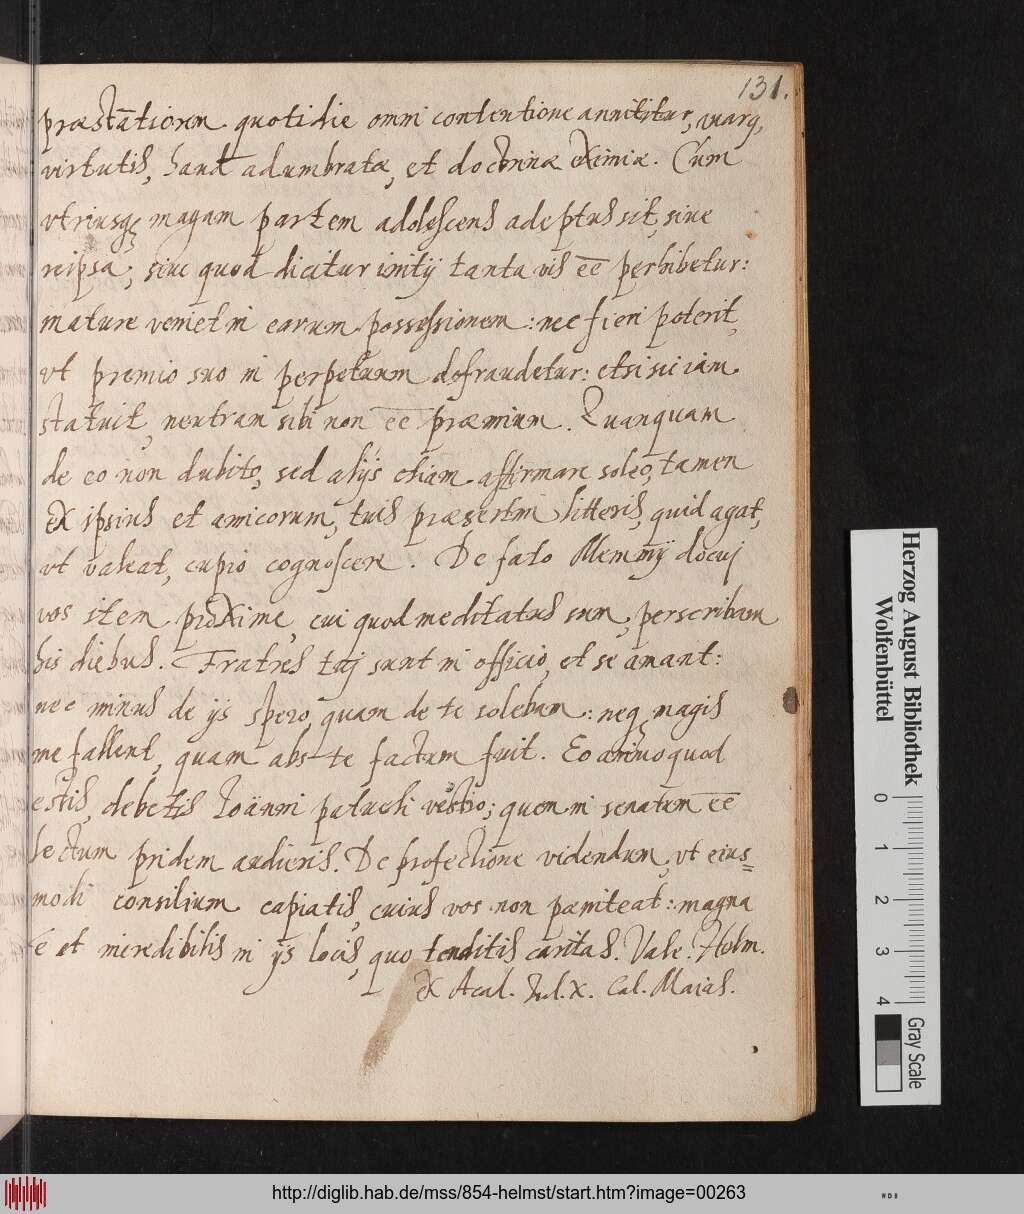 131.
præstātiorem quotidie omni contentione annititur,
virtutis, haud adumbratæ, et doctrinæ eximiæ. Cum
vtriusqꝫ magnam partem adolescens adeptus sit, siue
reipsa, siue quod dicitur initij tanta vis ēē perhibetur:
mature veniet in earum possessionem: nec fieri poterit,
vt premio suo in perpetuum defraudetur: etsi sic iam
statuit, neutram sibi non ēē præmium. Quanquam
de eo non dubito, sed alijs etiam affirmare soleo, tamen
ex ipsius et amicorum, tuis præsertim litteris, quid agat,
vt valeat, cupio cognoscere. De fato Memmij docuj
vos item proxime, cui quod meditatus sum, perscribam
his diebus. Fratres tuj sunt in officio, et se amant:
nec minus de ijs spero, quam de te solebam: neqꝫ magis
me fallent, quam abs te factum fuit. Eo animo quod
estis, debetis Joānni patrueli vestro; quem in senatum ēē
lectum pridem audieris. De profectione videndum, vt eius=
modi consilium capiatis, cuius vos non pæniteat: magna
ē et incredibilis in ijs locis, quo tenditis caritas. Vale. Helm.
ex Acad. Jul. X. Cal. Maias.
Herzog August Bibliothek
Wolfenbüttel
0
1
2
3
4
Gray Scale
http://diglib.hab.de/mss/854-helmst/start.htm?image=00263